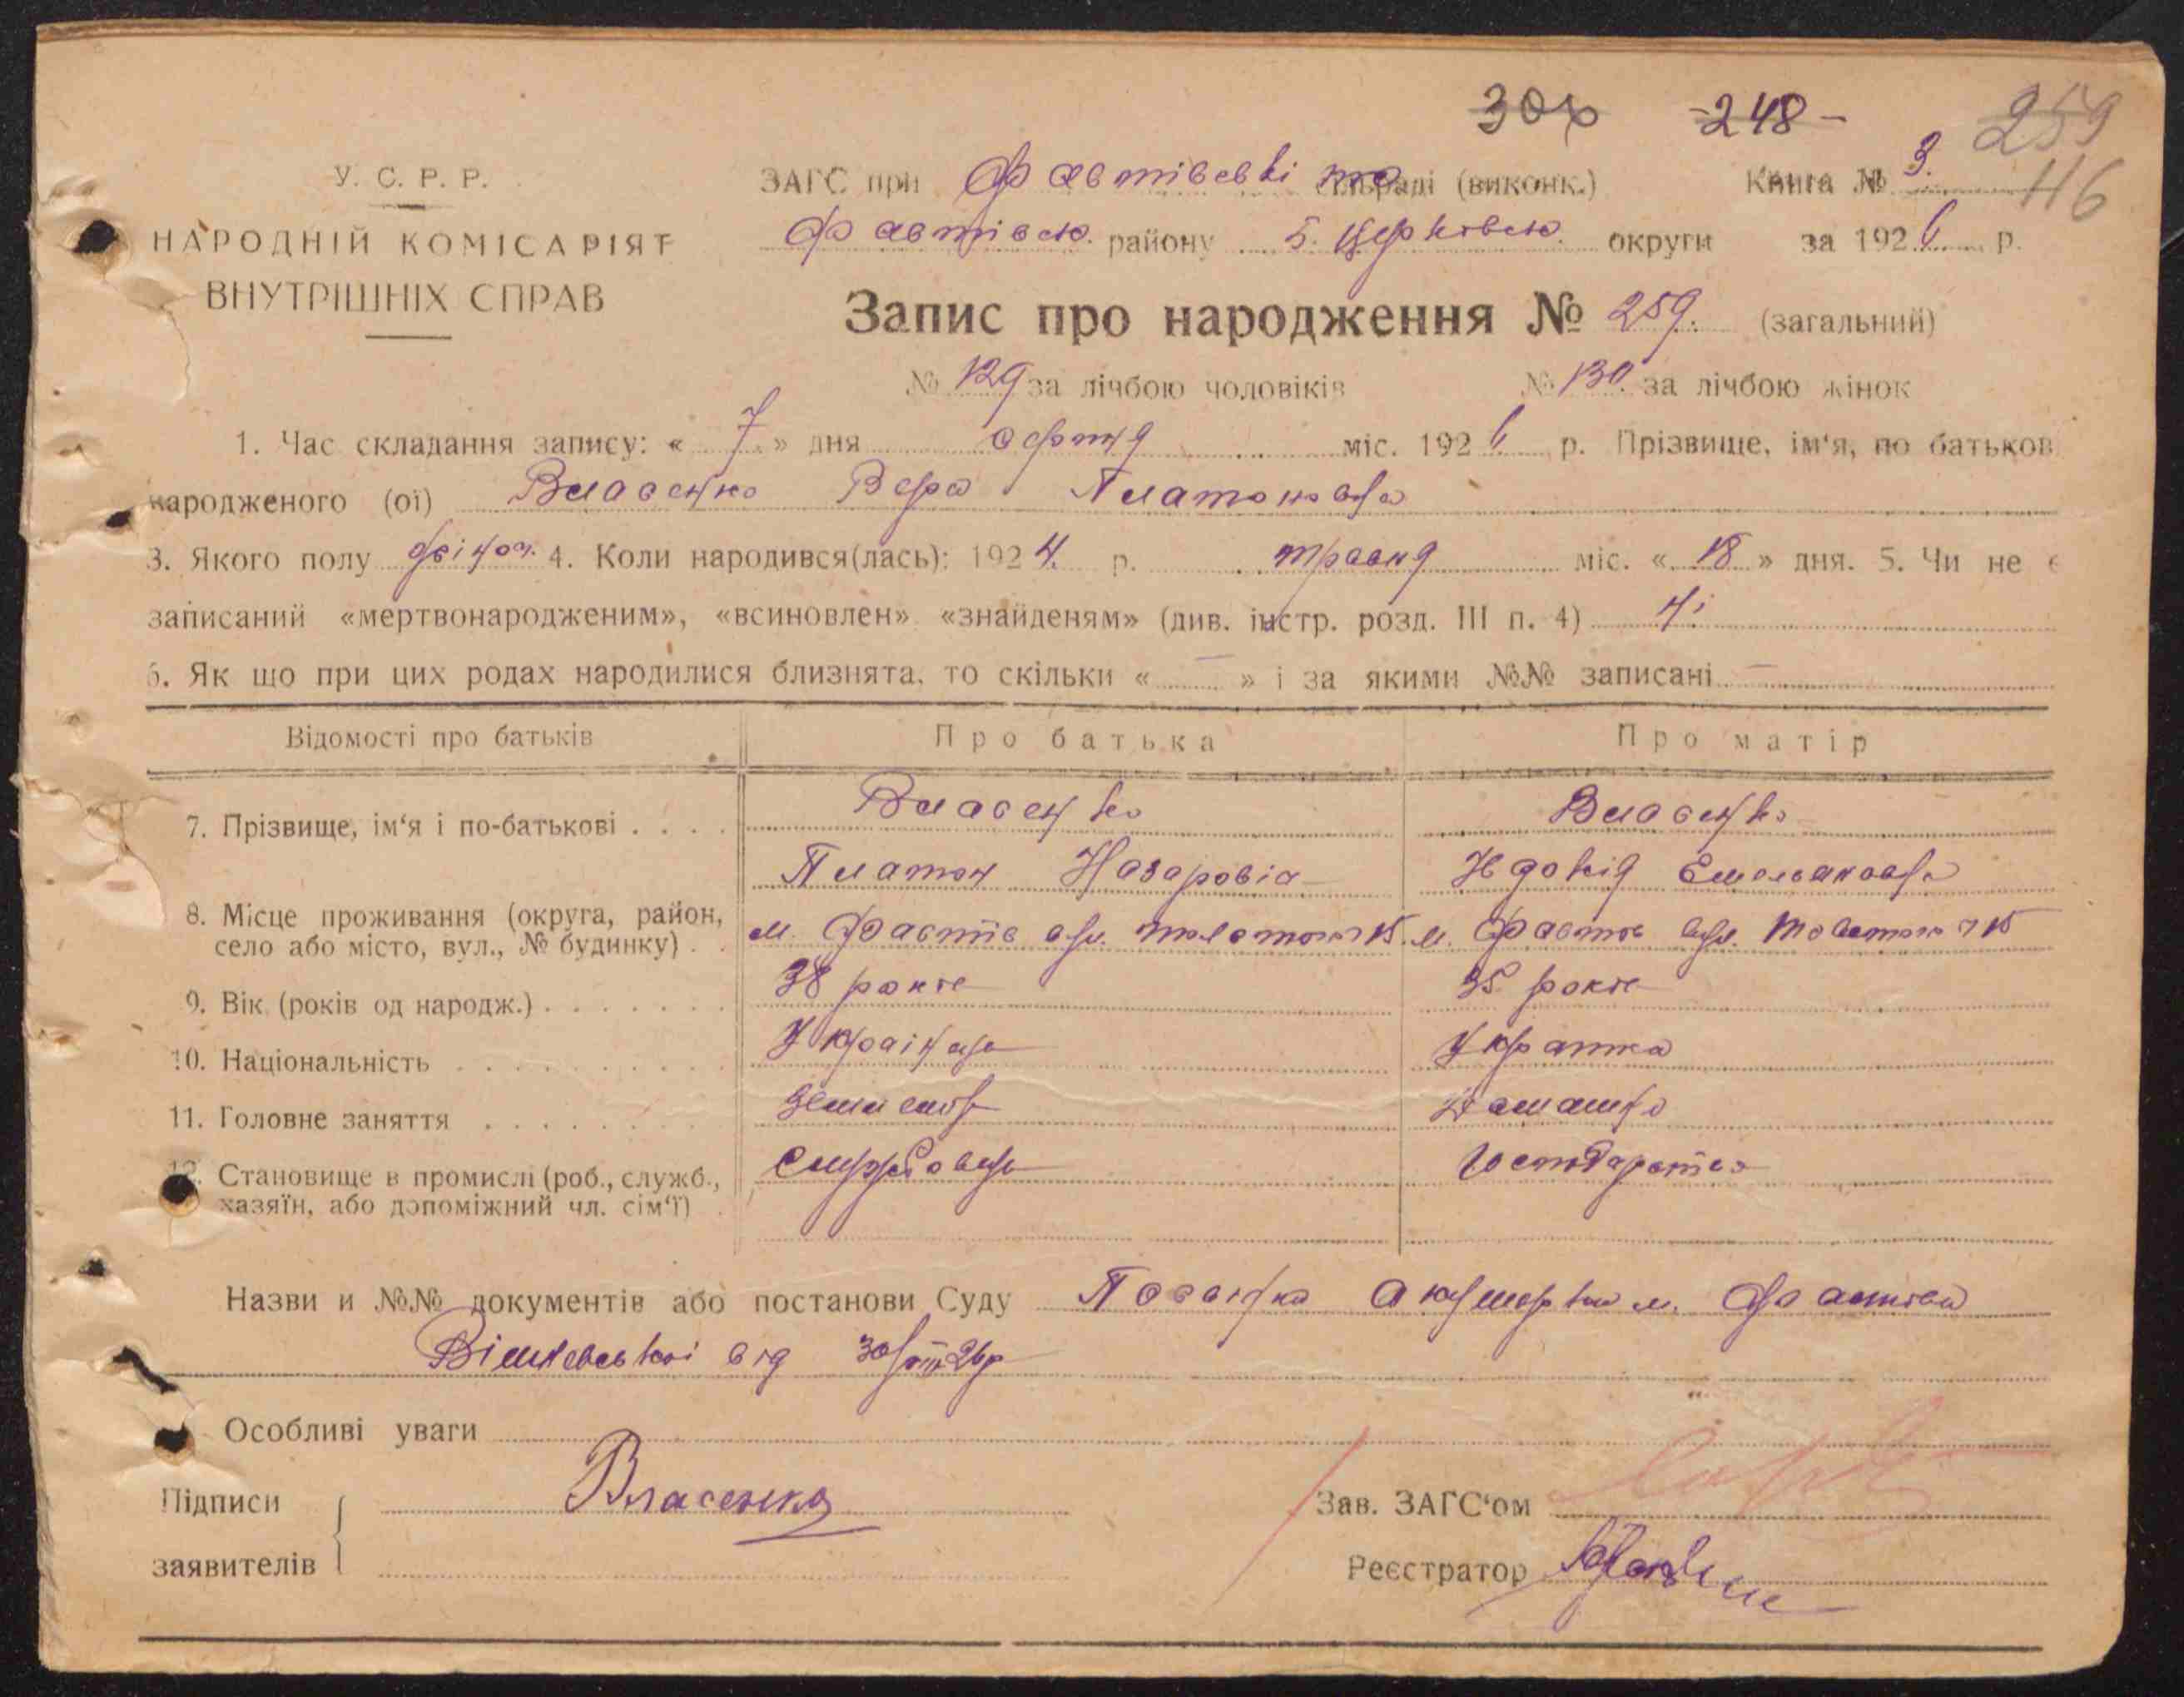 307 -248- 259
У. С. Р. Р. ЗАГС при Фастівські сільраді (виконк.) Книга № 3. 46
НАРОДНІЙ КОМІСАРІЯТ Фастівськ. району Б. Церківськ. округи за 1926 р.
ВНУТРІШНІХ СПРАВ
Запис про народження № 259. (загальний)
№ 129 за лічбою чоловіків № 130. за лічбою жінок
1. Час складання запису: « 7 » дня серпня міс. 1926 р. Прізвище, ім'я, по батьков
народженого (ої) Власенко Вера Платоновна
3. Якого полу жіноч. 4. Коли народився(лась): 1924. р. травня міс. « 18 » дня. 5. Чи не є
записаний «мертвонародженим», «всиновлен» «знайденям» (див. інстр. розд. III п. 4) ні
6. Як що при цих родах народилися близнята, то скільки « — » і за якими №№ записані —
Відомості про батьків Про батька Про матір
7. Прізвище, ім'я і по-батькові . . . . Власенко Власенко
Платон Назаровіч Явдокія Емельяновна
8. Місце проживання (округа, район,
село або місто, вул., № будинку) . . м. Фастів вул. 15. м. Фастов вул. 15
9. Вік (років од народж.) . . . . . . . 38 років 35 років
10. Національність . . . . . . . . . . Українець Українка
11. Головне заняття . . . . . . . . Домашня
12. Становище в промислі (роб., служб.,
хазяїн, або допоміжний чл. сім'ї) . Службовець
Назви и №№ документів або постанови Суду Посвідка Акушерки м. Фастова
від 30/VII 26р
Особливі уваги
Підписи Власенко Зав. ЗАГС'ом
заявителів Реєстратор